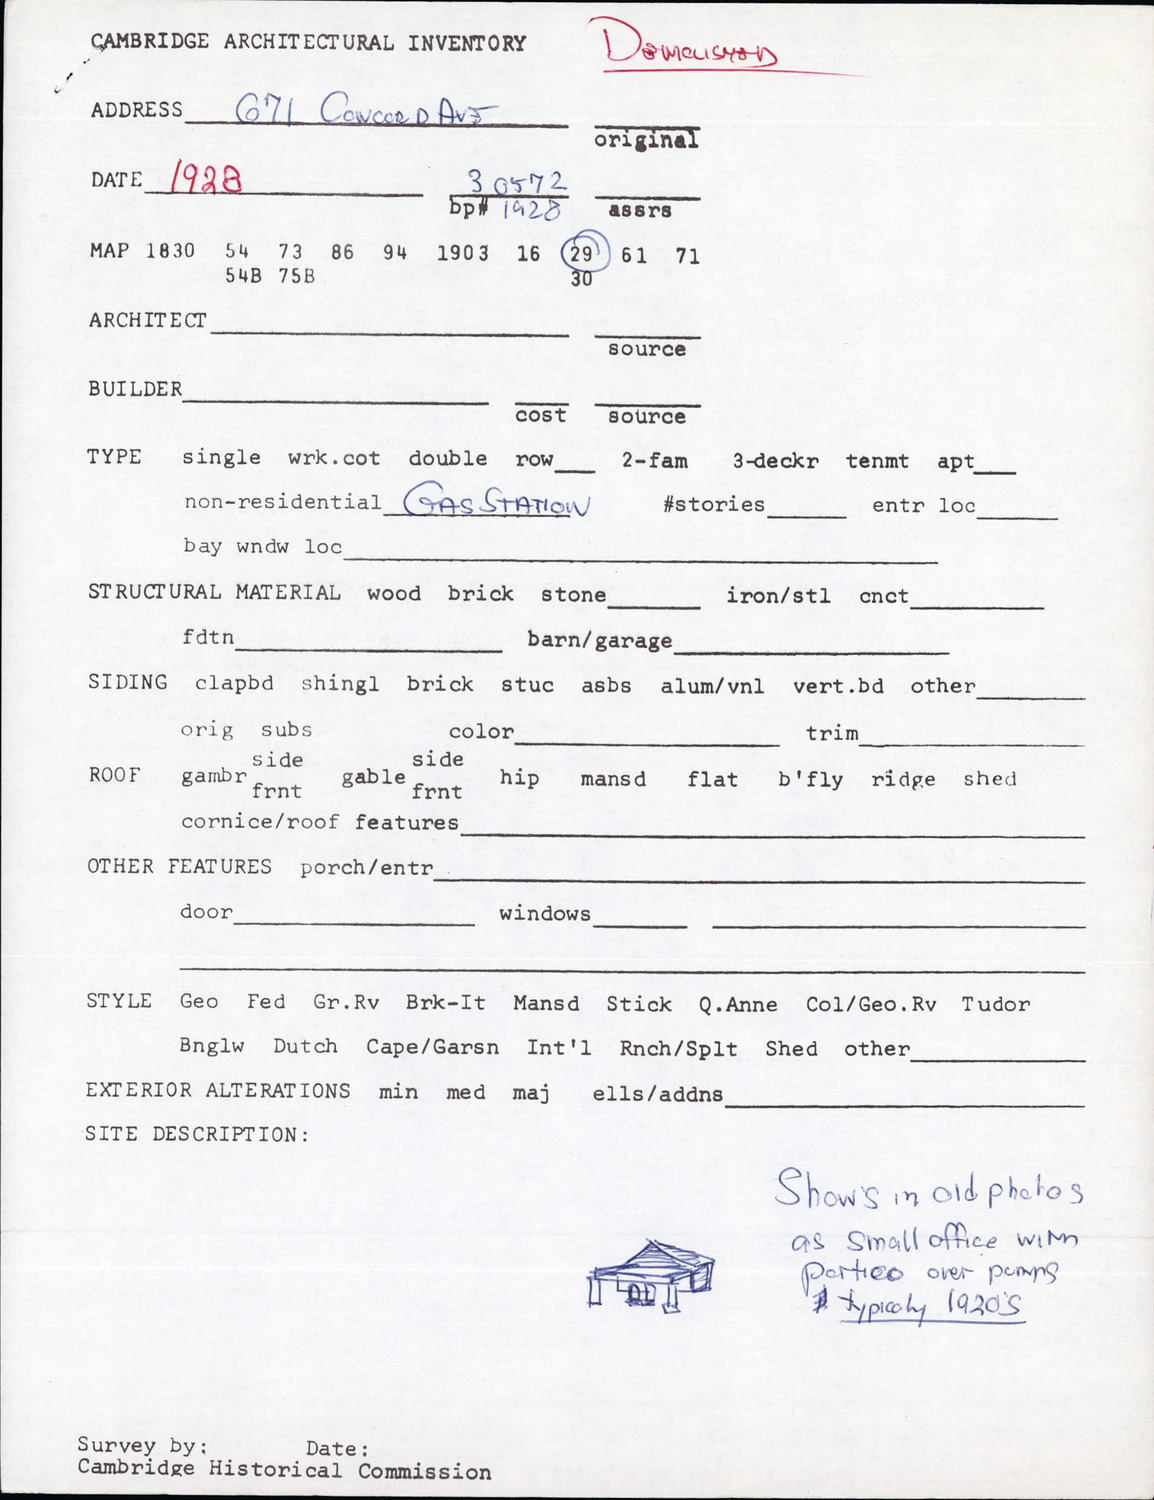 CAMBRIDGE ARCHITECTURAL INVENTORY Demolished
ADDRESS 671 Concord Ave
original
DATE 1928 30572
bp# 1928 assrs
MAP 1830 54 73 86 94 1903 16 29 61 71
54B 75B 30
ARCHITECT
source
BUILDER
cost source
TYPE single wrk.cot double row 2-fam 3-deckr tenmt apt
non-residential Gas Station #stories entr loc
bay wndw loc
STRUCTURAL MATERIAL wood brick stone iron/stl cnct
fdtn barn/garage
SIDING clapbd shingl brick stuc asbs alum/vnl vert.bd other
orig subs color trim
side side
ROOF gambr gable hip mansd flat b'fly ridge shed
frnt frnt
cornice/roof features
OTHER FEATURES porch/entr
door windows
STYLE Geo Fed Gr.Rv Brk-It Mansd Stick Q.Anne Col/Geo.Rv Tudor
Bnglw Dutch Cape/Garsn Int'l Rnch/Splt Shed other
EXTERIOR ALTERATIONS min med maj ells/addns
SITE DESCRIPTION:
Shows in old photos
as small office with
portico over pumps
typicaly 1920's
Survey by: Date:
Cambridge Historical Commission